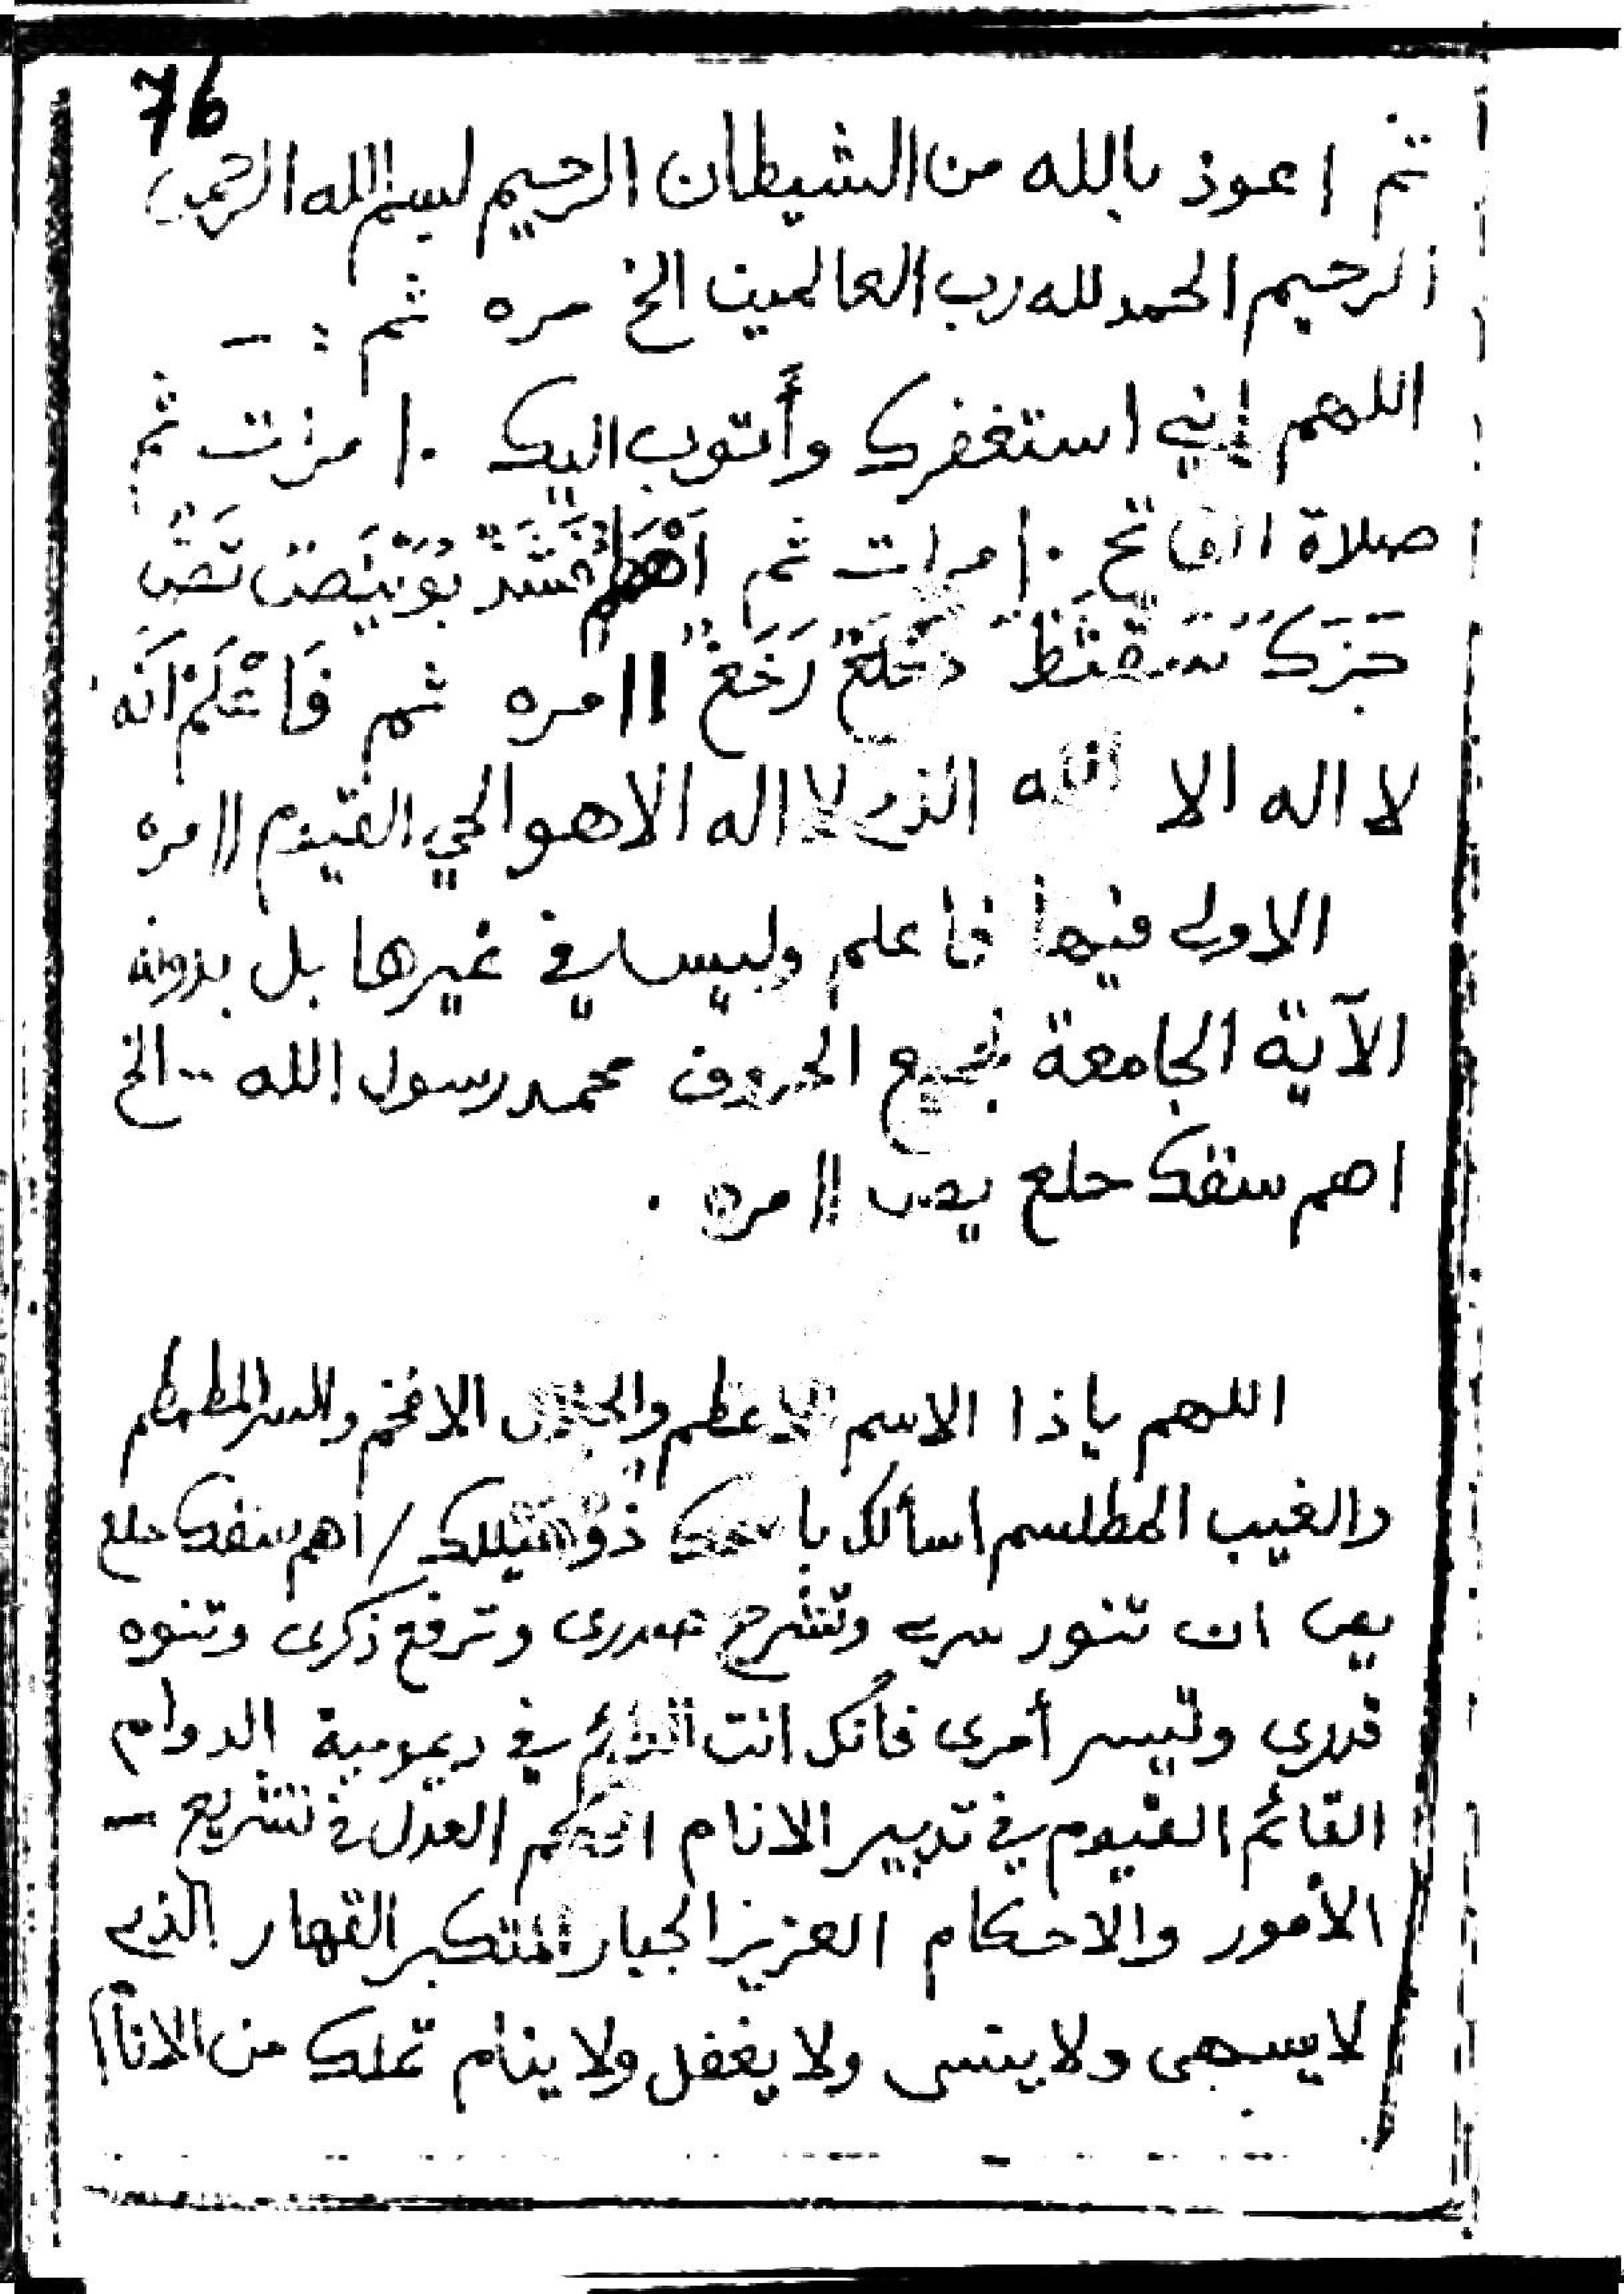 76
ثم اعوذ بالله من الشيطان الرجيم بسم الله الرحمن
الرحيم الحمد لله رب العالمين الخ مره ثم : –
اللهم إني استغفرك وأتوب اليك ١٠ مرات ثم
صلاة الفاتح ١٠ مرات ثم
١١ مره ثم فَاعْلَمْ اَنَّه
لا اله الا الله الذي لا اله الا هو الحي القيوم ١١ مره
الاولى فيها فاعلم وليس في غيرها بل بدونه
الآية الجامعة لجميع الحروف محمد رسول الله .. الخ
اهم سقك حلع يص ١١ مره .
اللهم ياذا الاسم الاعظم والافخم والسر المطمطم
والغيب المطلسم اسألك / اهم سقك حلع
يص ان تنور سري وتشرح صدري وترفع ذكرى وتنوه
قدري وتيسر أمرى فانك انت الدائم في ديمومية الدوام
القائم القيوم في تدبير الانام الحكم العدل في تشريع –
الأمور والاحكام العزيز الجبار المتكبر القهار الذي
لا يسهى ولا ينسى ولا يغفل ولا ينام تملك من الانام